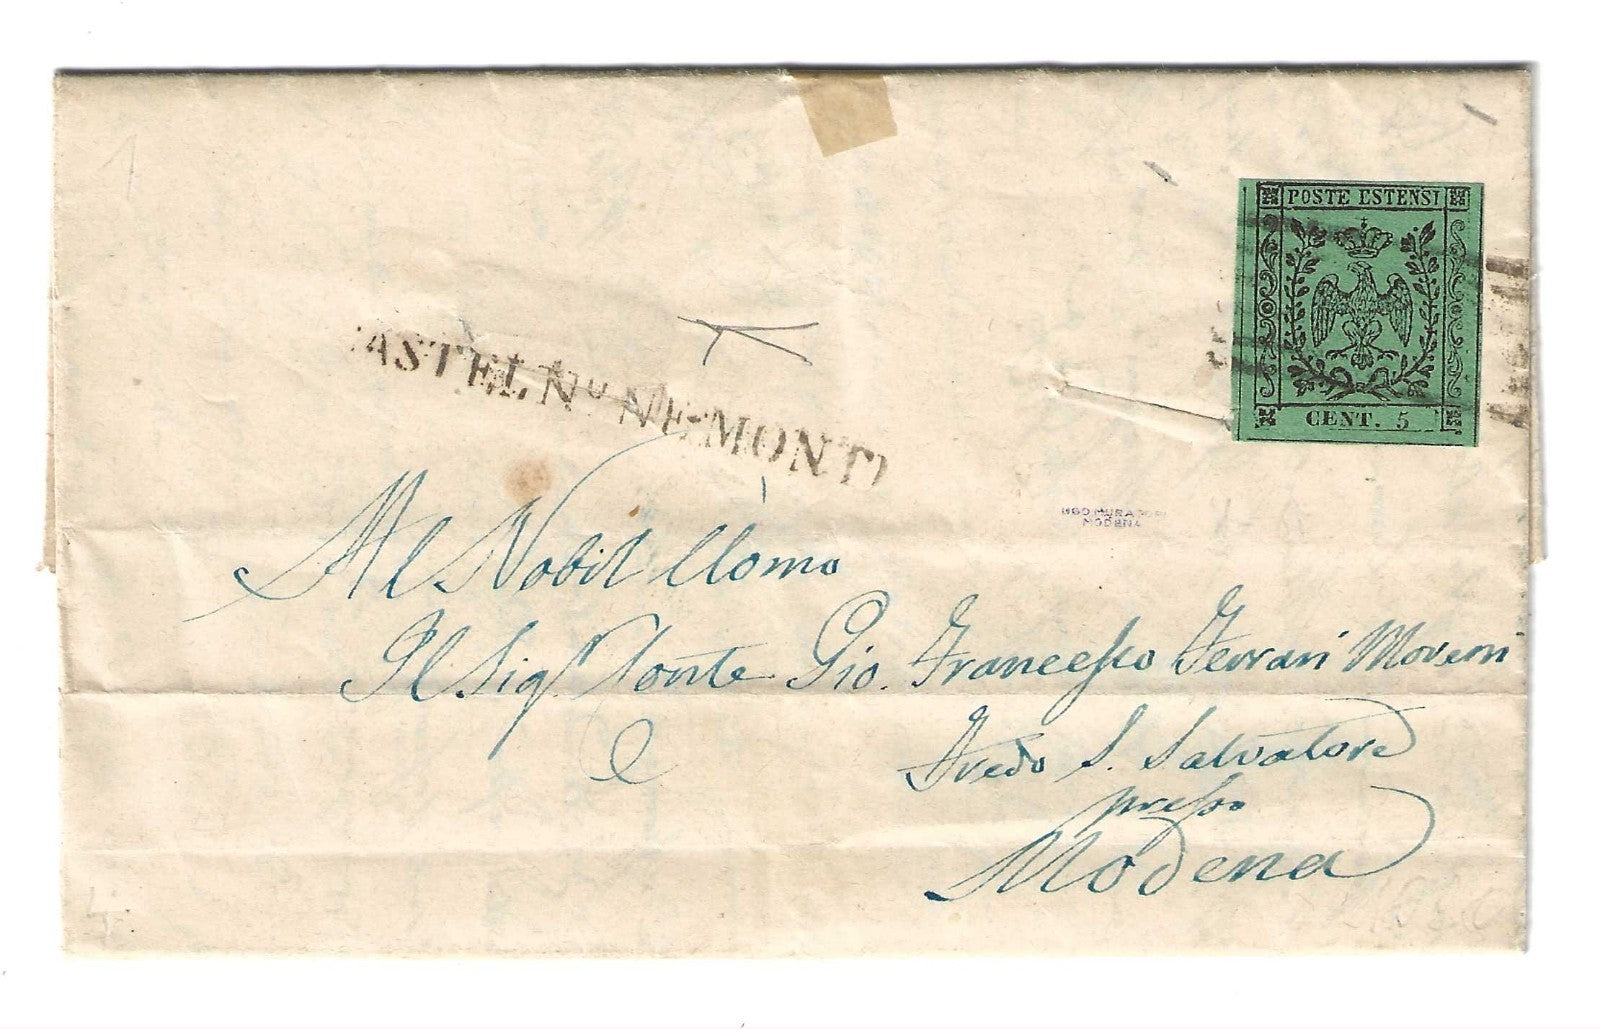 POSTE ESTENSI
CENT. 5
ASTEL Nu NE-MONTI
UGO MURATORI
MODENA
Al Nobil Uomo
Il Sigr Conte Gio. Francesco Ferrari Moreni
S. Salvatore
presso
Modena